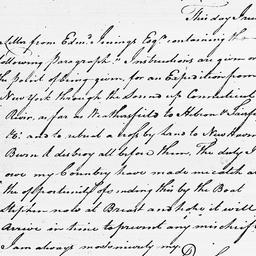 This day I rec
Letter from Edmd. Jenings Esqr. containing the
following Paragraph "Instructions are given or
the point of being given, for an Expedition from
New York through the Sound up Connecticut
River, as far as Weathersfield to Hebron & Fairf
&c: and to send a top by land to New Haven
Burn & destroy all before them. The duty I
owe my Country have made me catch at
the opportunity of sending this by the Boat
Stephen now at Brest and hope it will
Arrive in time to prevent any mischief
I am always most sincerely my